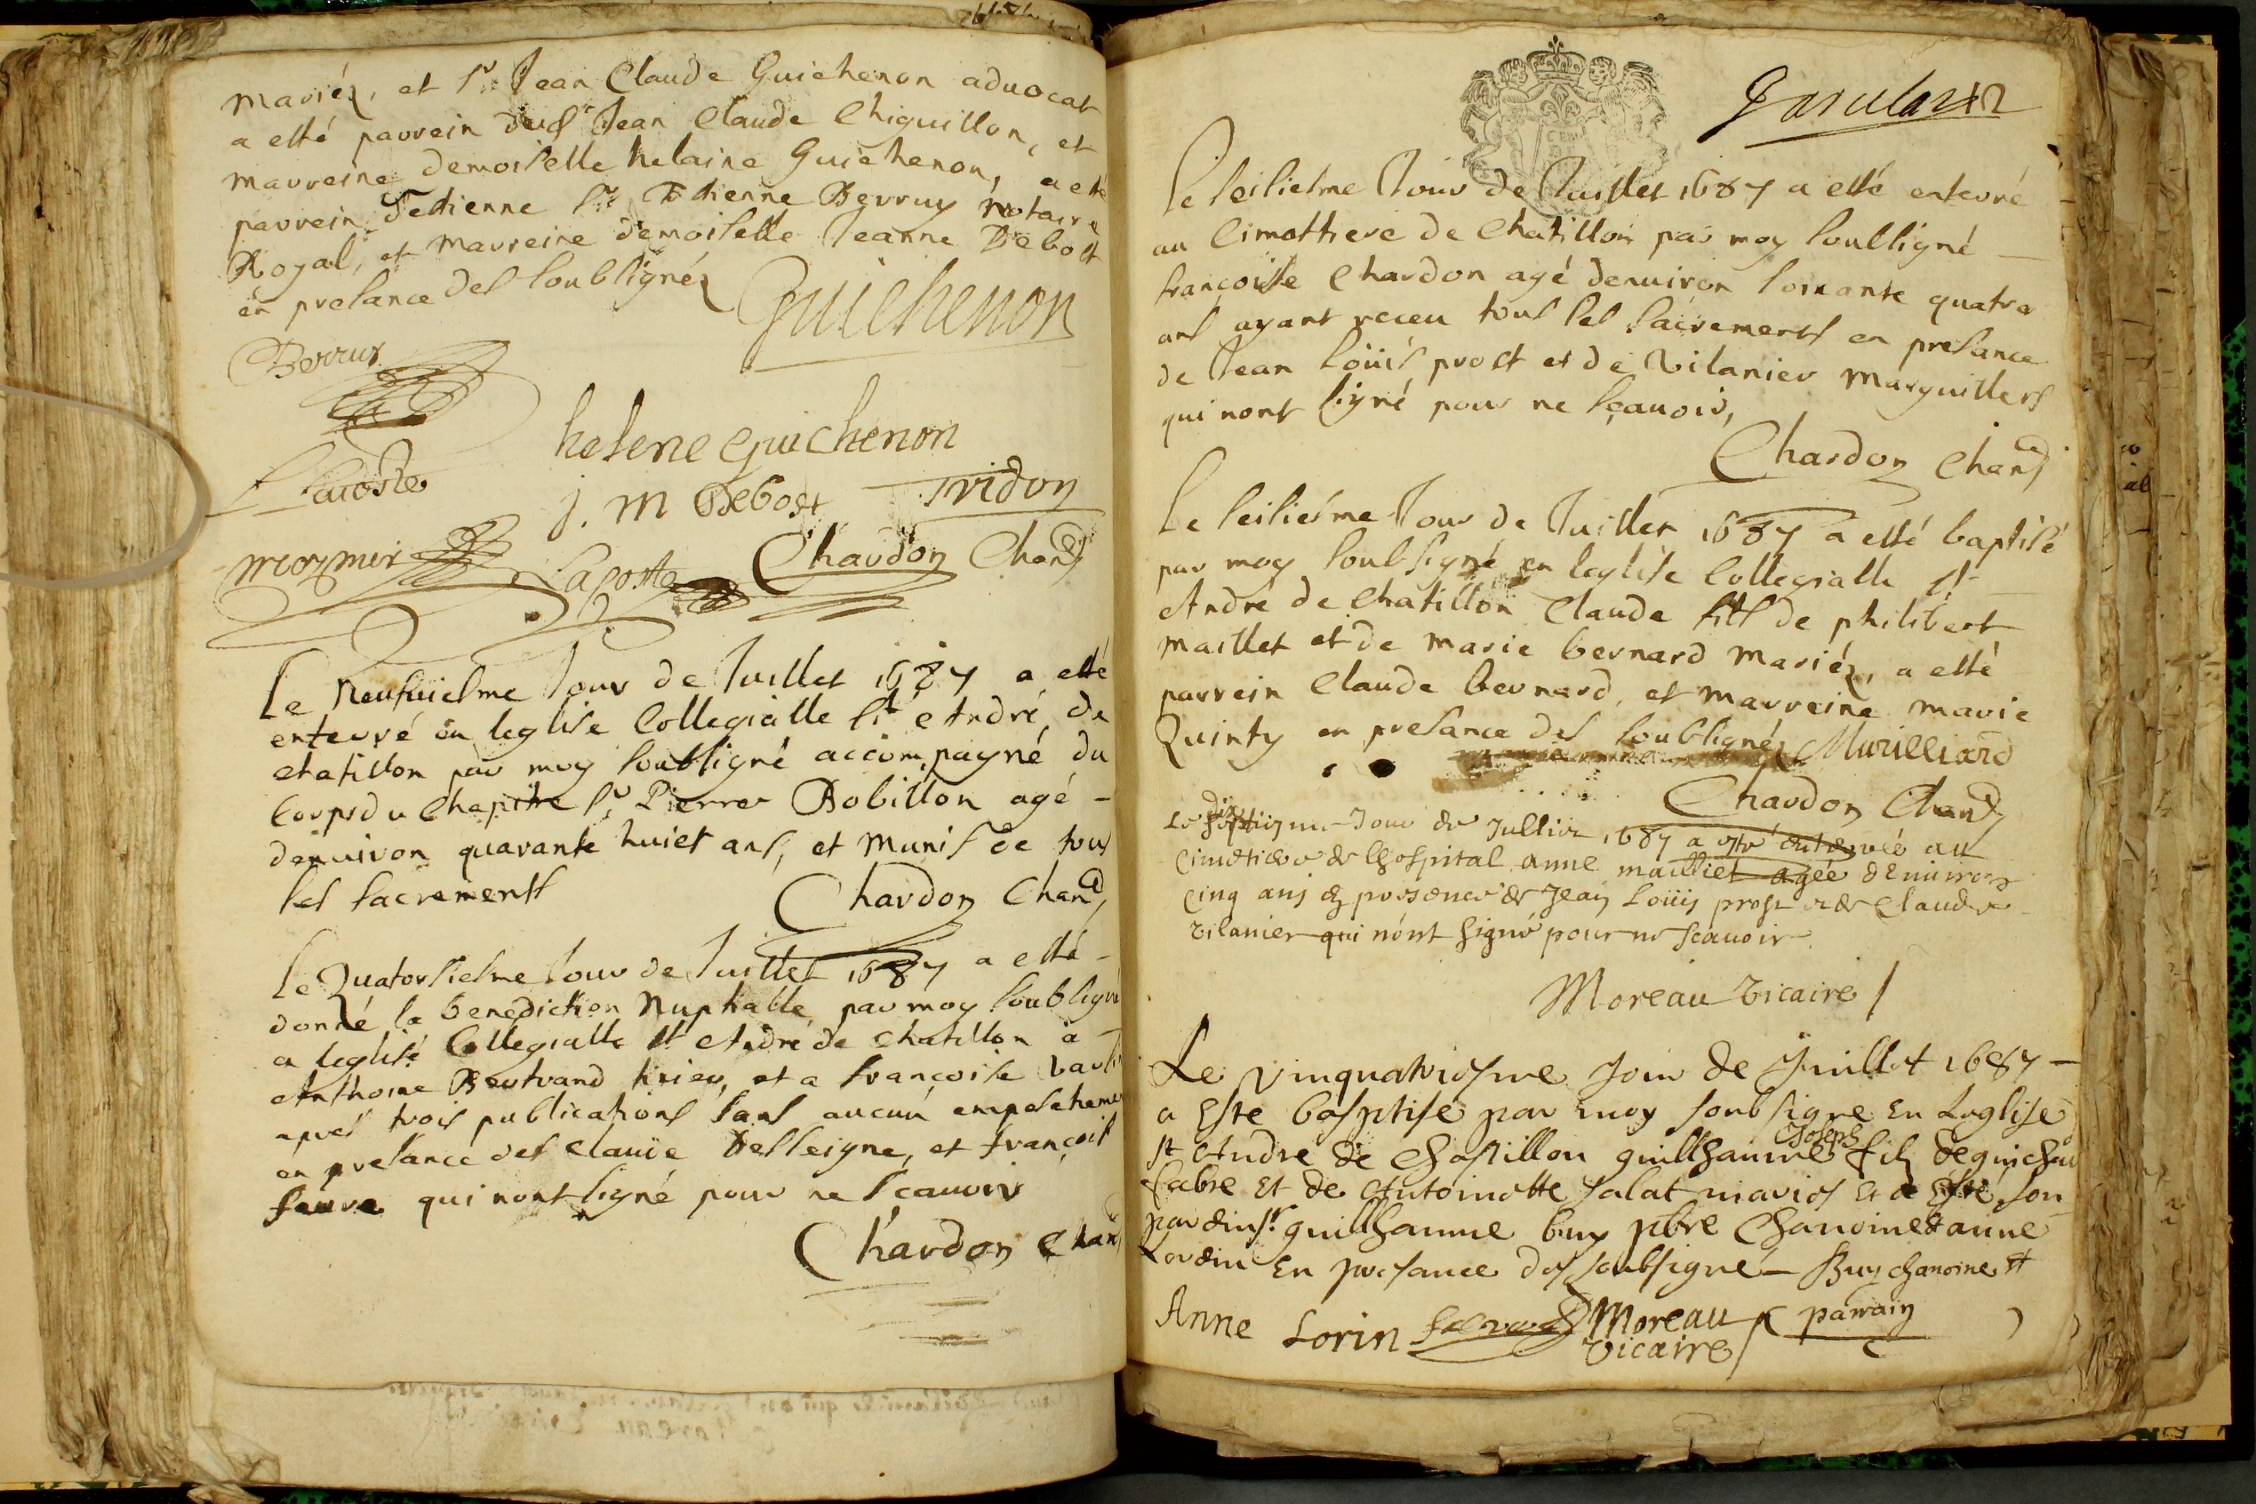 mariéz, et Sr Jean Claude Guichenon aduocat
a esté parrein dud Sr Jean Claude Chiguillon, et
marreine demoiselle helaine Guichenon, a esté
parrein Sr Estienne Berruy Notaire
Royal, et marreine demoiselle Jeanne Debost
en presance des soubsignéz
Guichenon
Berruy
helene guichenon
Lacoste
j. m Debost Tridon
Lacoste Chardon Chan
Le Neufuiesme Jour de Juillet 1687 a esté
enterré en leglise Collegialle St André de
chatillon par moy soubsigné accompagné du
Corps du Chapitre Sr Pierre Robillon agé
denuiron quarante huict ans, et munis de tous
les sacrements
Chardon Chane,
Le Quatorsiesme Jour de Juillet 1687 a esté
donné la benediction Nuptialle par moy soubsigné
a leglise Collegialle St André de chatillon a
Anthoine Bertrand et a francoise
apres trois publications sans aucun empeschement
en presance des Claude et francois
feure qui nont signé pour ne scauoir
Chardon Chan
Le seisiesme Jour de Juillet 1687 a esté enterré
au Cimettiere de Chatillon par moy soubsigné
francoise Chardon agé denuiron soixante quatre
ans ayant receu tous les sacrements en presance
de Jean Loüis prost et de Vilanier Marguilliers
qui nont signé pour ne sçauoir,
Chardon Chane
Le seisiesme Jour de Juillet 1687 a esté baptisé
par moy soubsigné en leglise Collegialle St
André de Chatillon Claude fils de philibert
maillet et de marie bernard mariéz, a esté
parrein Claude bernard, et marreine marie
Quinty en presance des soubsignéz Murilliard
Chardon Chane
Le dixseptiesme Jour de Jullier 1687 a esté enterrée au
Cimetiere de lhospital anne maillet agée denuiron
Cinq ans en presence de Jean Loüis prost et de Claude
Vilanier qui n'ont signé pour ne scauoir
Moreau Vicaire
Le vinquatriesme Jour de Juillet 1687
a este baptisé par moy soubsigne En Leglise
st Andre de Chastillon guillhaume Joseph fils de guichar
fabre Et de Antoinette salat maries Et a Esté son
parein sr guillhaume buy pbre Chanoine & anne
Lordin En presance des soubsigné Buy chanoine et
Anne Lorin Moreau parrain
Vicaire